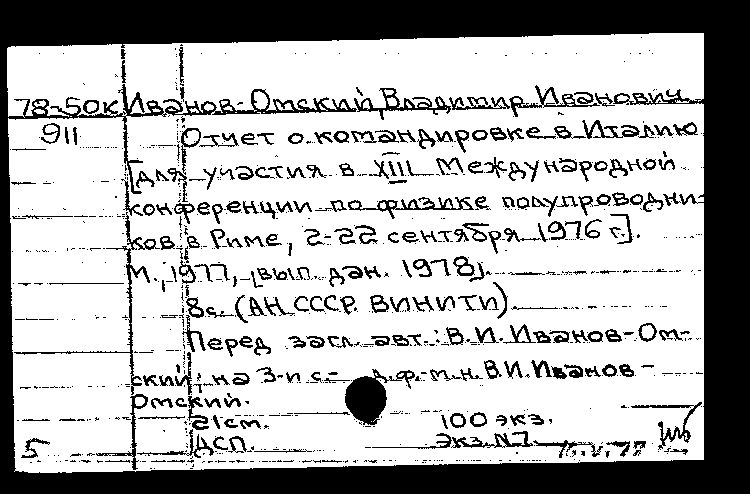 78-50к Иванов-Омский, Владимир Иванович
911 Отчет о командировке в Италию
[для участия в XIII Международной
конференции по физике полупроводни-
ков в Риме, 2-22 сентября 1976 г.].
М., 1977, [вып. дан. 1978].
8с. (АН СССР. ВИНИТИ).
Перед загл. авт.: В.И. Иванов-Ом-
ский; на 3-й с.- д.ф.-м.н. В.И. Иванов-
Омский.
21см. 100 экз.
5 ДСП. Экз. N7.